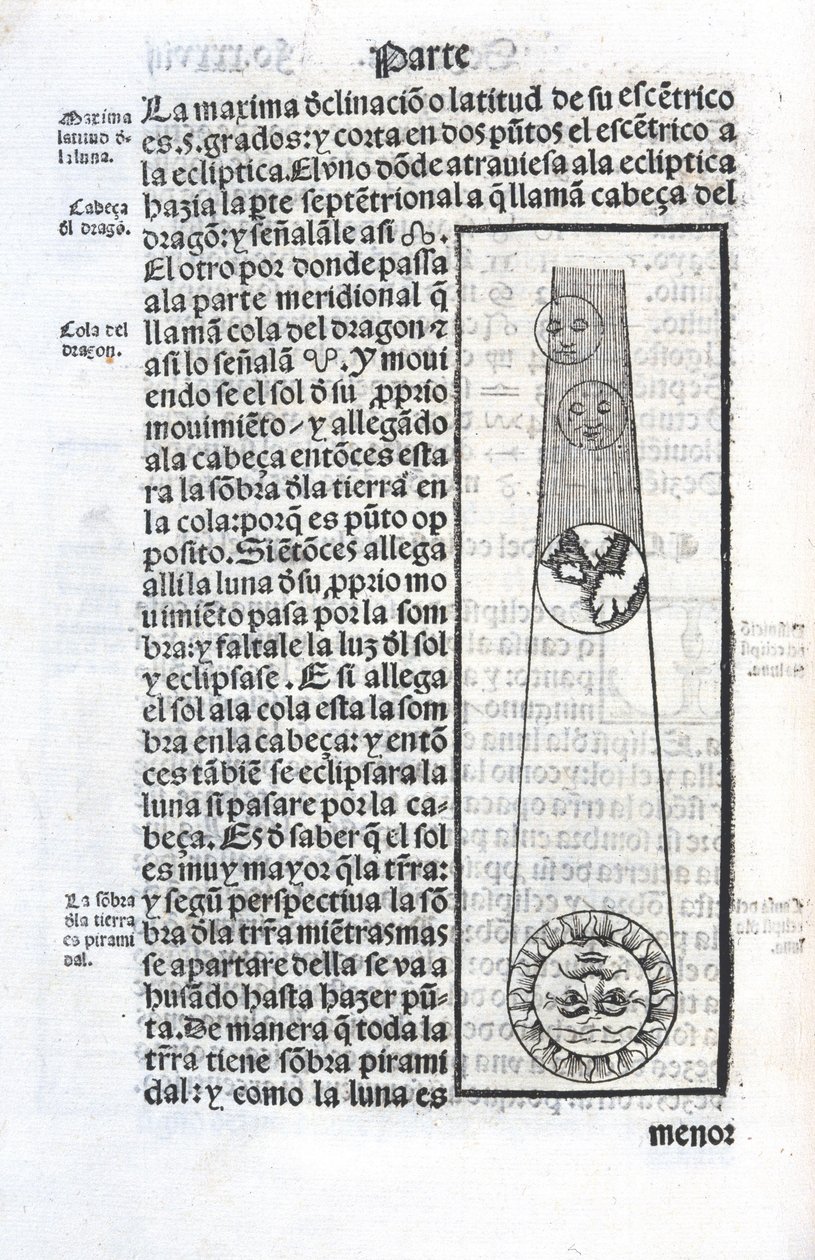 Parte
La maxima d̄clinaciō o latitud de su escētrico
es .5. grados: y corta en dos pūtos el escētrico a
la ecliptica. El vno dōde atrauiesa ala ecliptica
hazia la pte septētrional a q̄ llamā cabeça del
dragō: y señalāle asi ☊.
El otro por donde passa
ala parte meridional q̄
llamā cola del dragon ⁊
asi lo señalā ☋. Y moui
endo se el sol d̄ su proprio
mouimiēto / y allegādo
ala cabeça entōces esta
ra la sōbra d̄la tierra en
la cola: porq̄ es pūto op
posito. Si ētōces allega
alli la luna d̄ su proprio mo
uimiēto pasa por la som
bra: y faltale la luz d̄l sol
y eclipsase. E si allega
el sol ala cola esta la som
bra enla cabeça: y entō
ces tābiē se eclipsara la
luna si pasare por la ca-
beça. Es d̄ saber q̄ el sol
es muy mayor q̄ la tr̄ra:
y segū perspectiua la sō
bra d̄la trr̄a miētras mas
se apartare della se va a
husādo hasta hazer pū-
ta. De manera q̄ toda la
tr̄ra tiene sōbra pirami
dal: y como la luna es
menor
Maxima
latitud d̄-
la luna.
Cabeça
d̄l dragō.
Cola del
dragon.
La sōbra
d̄la tierra
es pirami
dal.